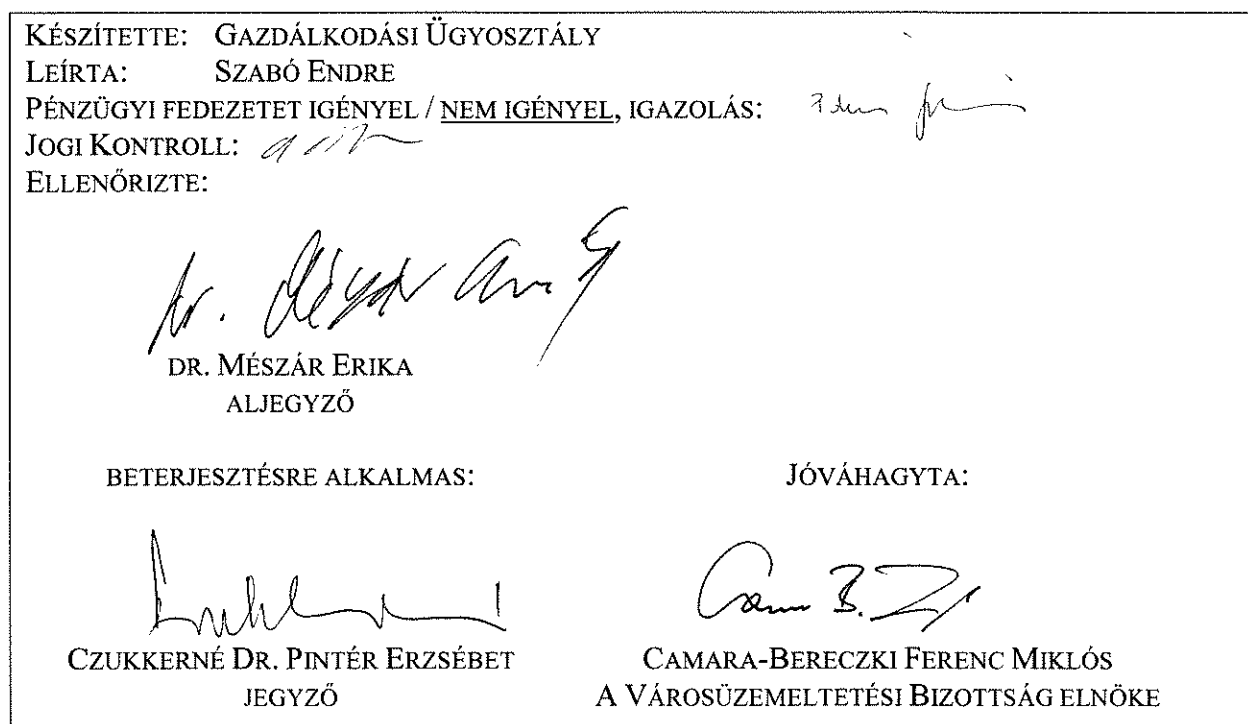 KÉSZÍTETTE: GAZDÁLKODÁSI ÜGYOSZTÁLY
LEÍRTA: SZABÓ ENDRE
PÉNZÜGYI FEDEZETET IGÉNYEL / NEM IGÉNYEL, IGAZOLÁS:
JOGI KONTROLL:
ELLENŐRIZTE:
DR. MÉSZÁR ERIKA
ALJEGYZŐ
BETERJESZTÉSRE ALKALMAS:
JÓVÁHAGYTA:
CZUKKERNÉ DR. PINTÉR ERZSÉBET
JEGYZŐ
CAMARA-BERECZKI FERENC MIKLÓS
A VÁROSÜZEMELTETÉSI BIZOTTSÁG ELNÖKE